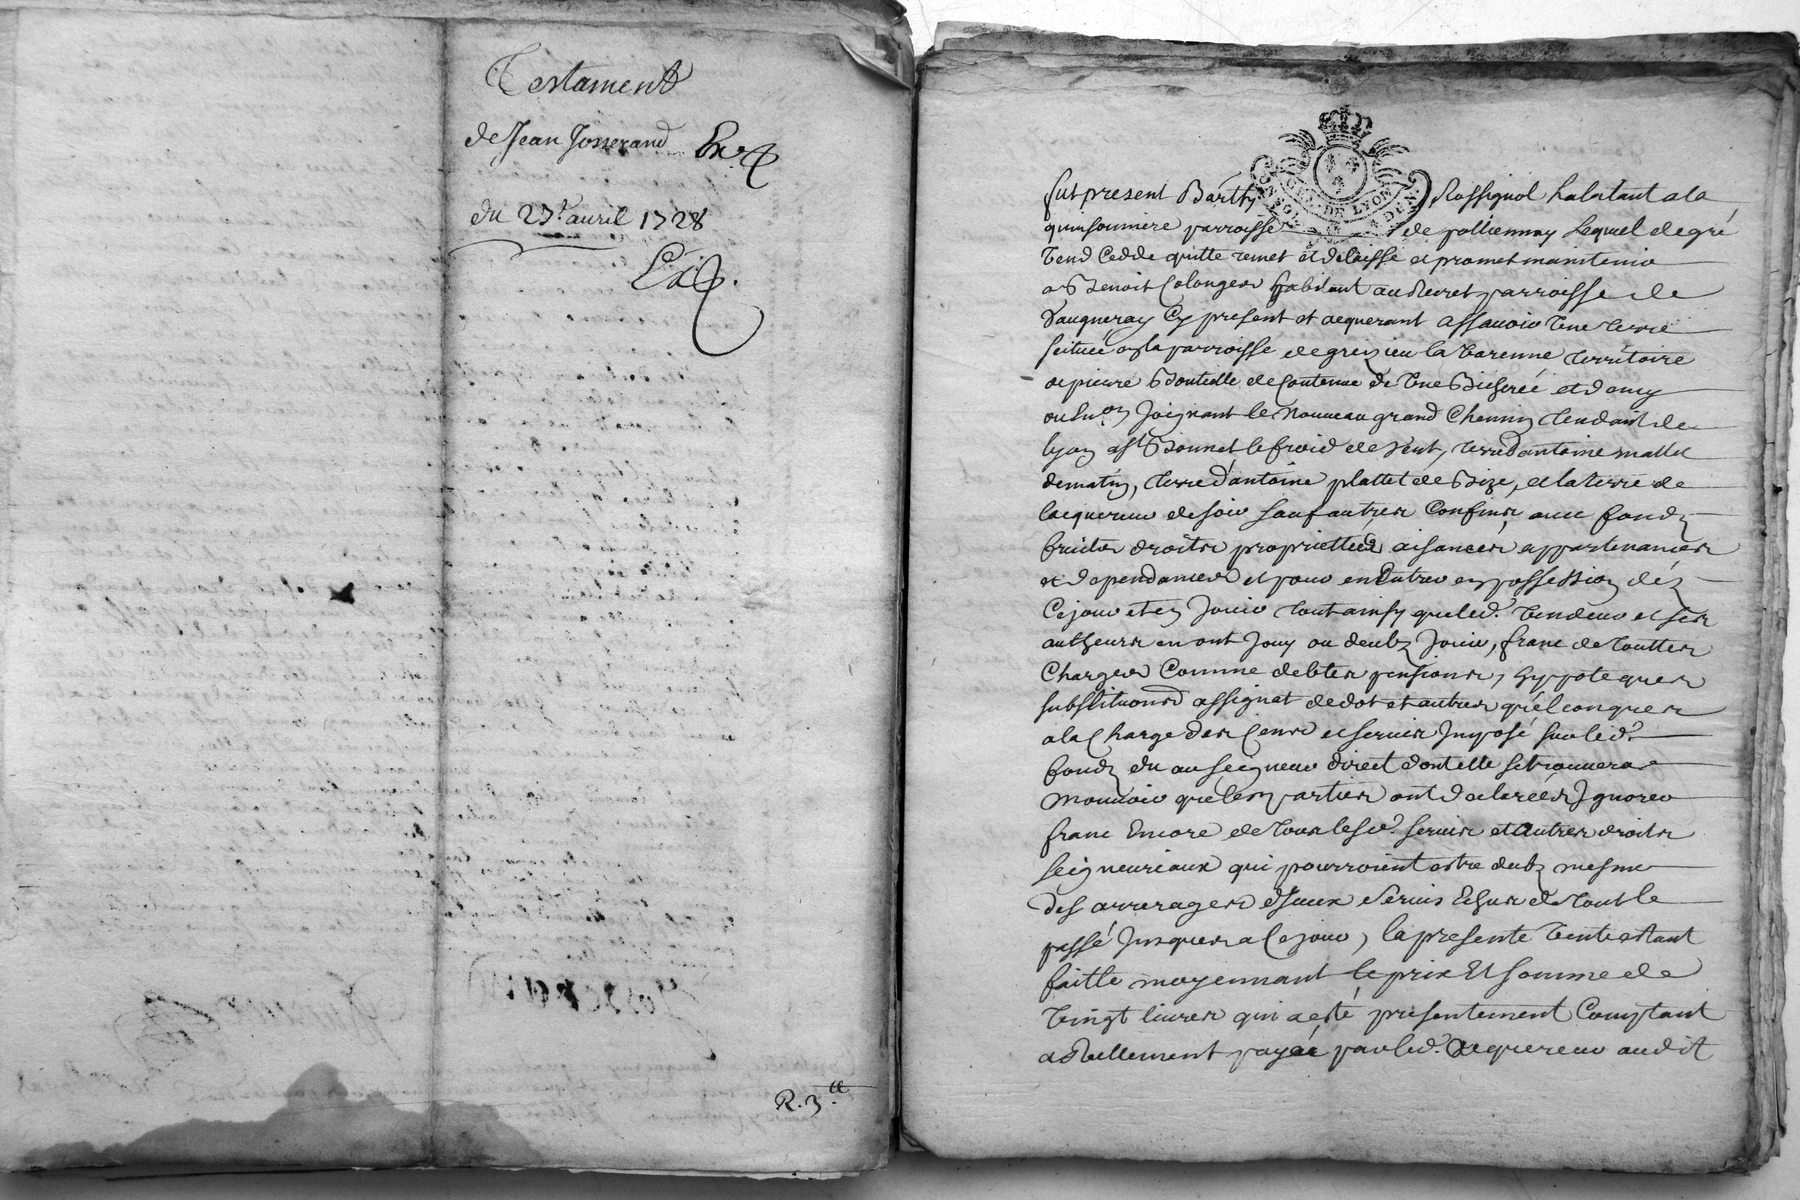 Testament
de Jean Josserand
du 27e auril 1728
R. 3.
GEN. DE LYON
fut present Barthy Rossignol habitant a la
quinsonniere parroisse de pollionnay Lequel de gré
Vend Cedde quitte remet et delaisse et promet maintenir
a Benoit Colonges habitant au Recret parroisse de
Vaugneray Cy present et acquerant assauoir Vne terre
scituée en la parroisse de greizieu la Varenne territoire
de pierre Bouteille de Contenue de Vne Bicheréé et demy
ou enuon Joignant le Nouueau grand Chemin tendant de
lyon a St Bonnet le froid de Vent, terre d'antoine mallet
de matin, terre d'antoine plattet de Bize, et la terre de
lacquereur de soir sauf autres Confins auec fondz
fruits droits proprietteés aisances appartenances
et dependances et pour en Entrer en possession déz
Ce jour et en Jouir tout ainsy que led. Vendeur et ses
autheurs en ont Jouy ou deubz Jouir, franc de touttes
Charges Comme debtes pensions, hyppoteques
substitutions assignat de dot et autres quelconques
a la Charge des Cens et seruis Imposé sur led.
fondz du au seigneur direct dont elle se trouuera
mouuoir que les parties ont declarées Ignorer
franc Encore de tous lesd. seruis et autres droits
seigneuriaux qui pourroient estre deubz mesme
des arrerages d'Iceux seruis Echus de tout le
passé Jusques a Ce jour, la presente Vente estant
faitte moyennant le prix Et somme de
Vingt liures qui a esté presentement Comptant
et Rellement payéé par led. acquereur audit